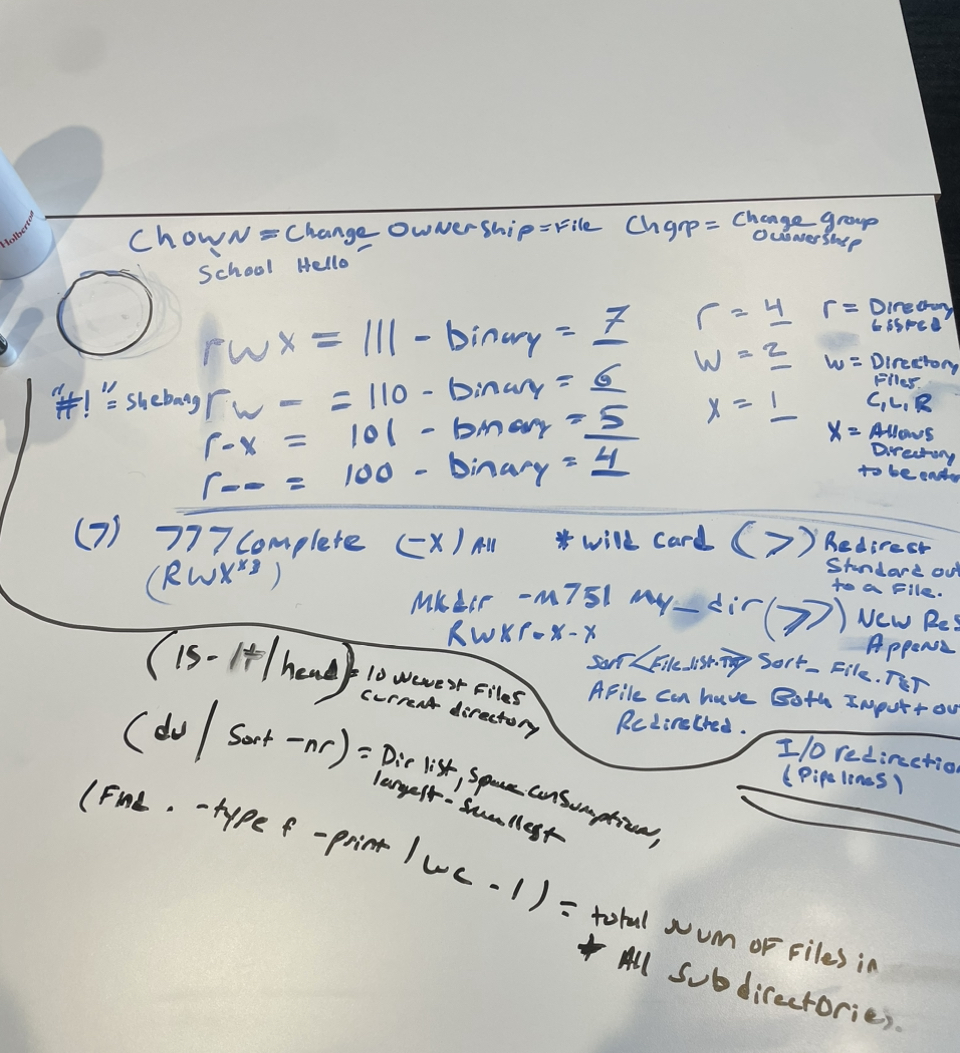 Holberton
Chown = Change Ownership = File
School Hello
Chgrp = Change group
ownership
rwx = 111 - binary = 7
"#!" = shebang
rw- = 110 - binary = 6
r-x = 101 - binary = 5
r-- = 100 - binary = 4
r = 4
w = 2
x = 1
r = Directory
Listed
w = Directory
Files
C, L, R
x = Allows
Directory
to be
(7) 777 Complete (-x) All
(RWX
* wild card
(>) Redirest
Standard out
to a File.
Mkdir -m751 my_dir
RWXr-x-x
(>>) New Res
Append
Sort <File_list.TxT> Sort_File.TxT
A File can have Both Input + out
Redirected.
I/O redirection
(Pipelines)
(ls - lt / head) = 10 newest Files
current directory
(du / Sort -nr) = Dir list, space consumption,
largest - smallest
(Find . -type f -print / wc - l) = total Num OF Files in
* All subdirectories.